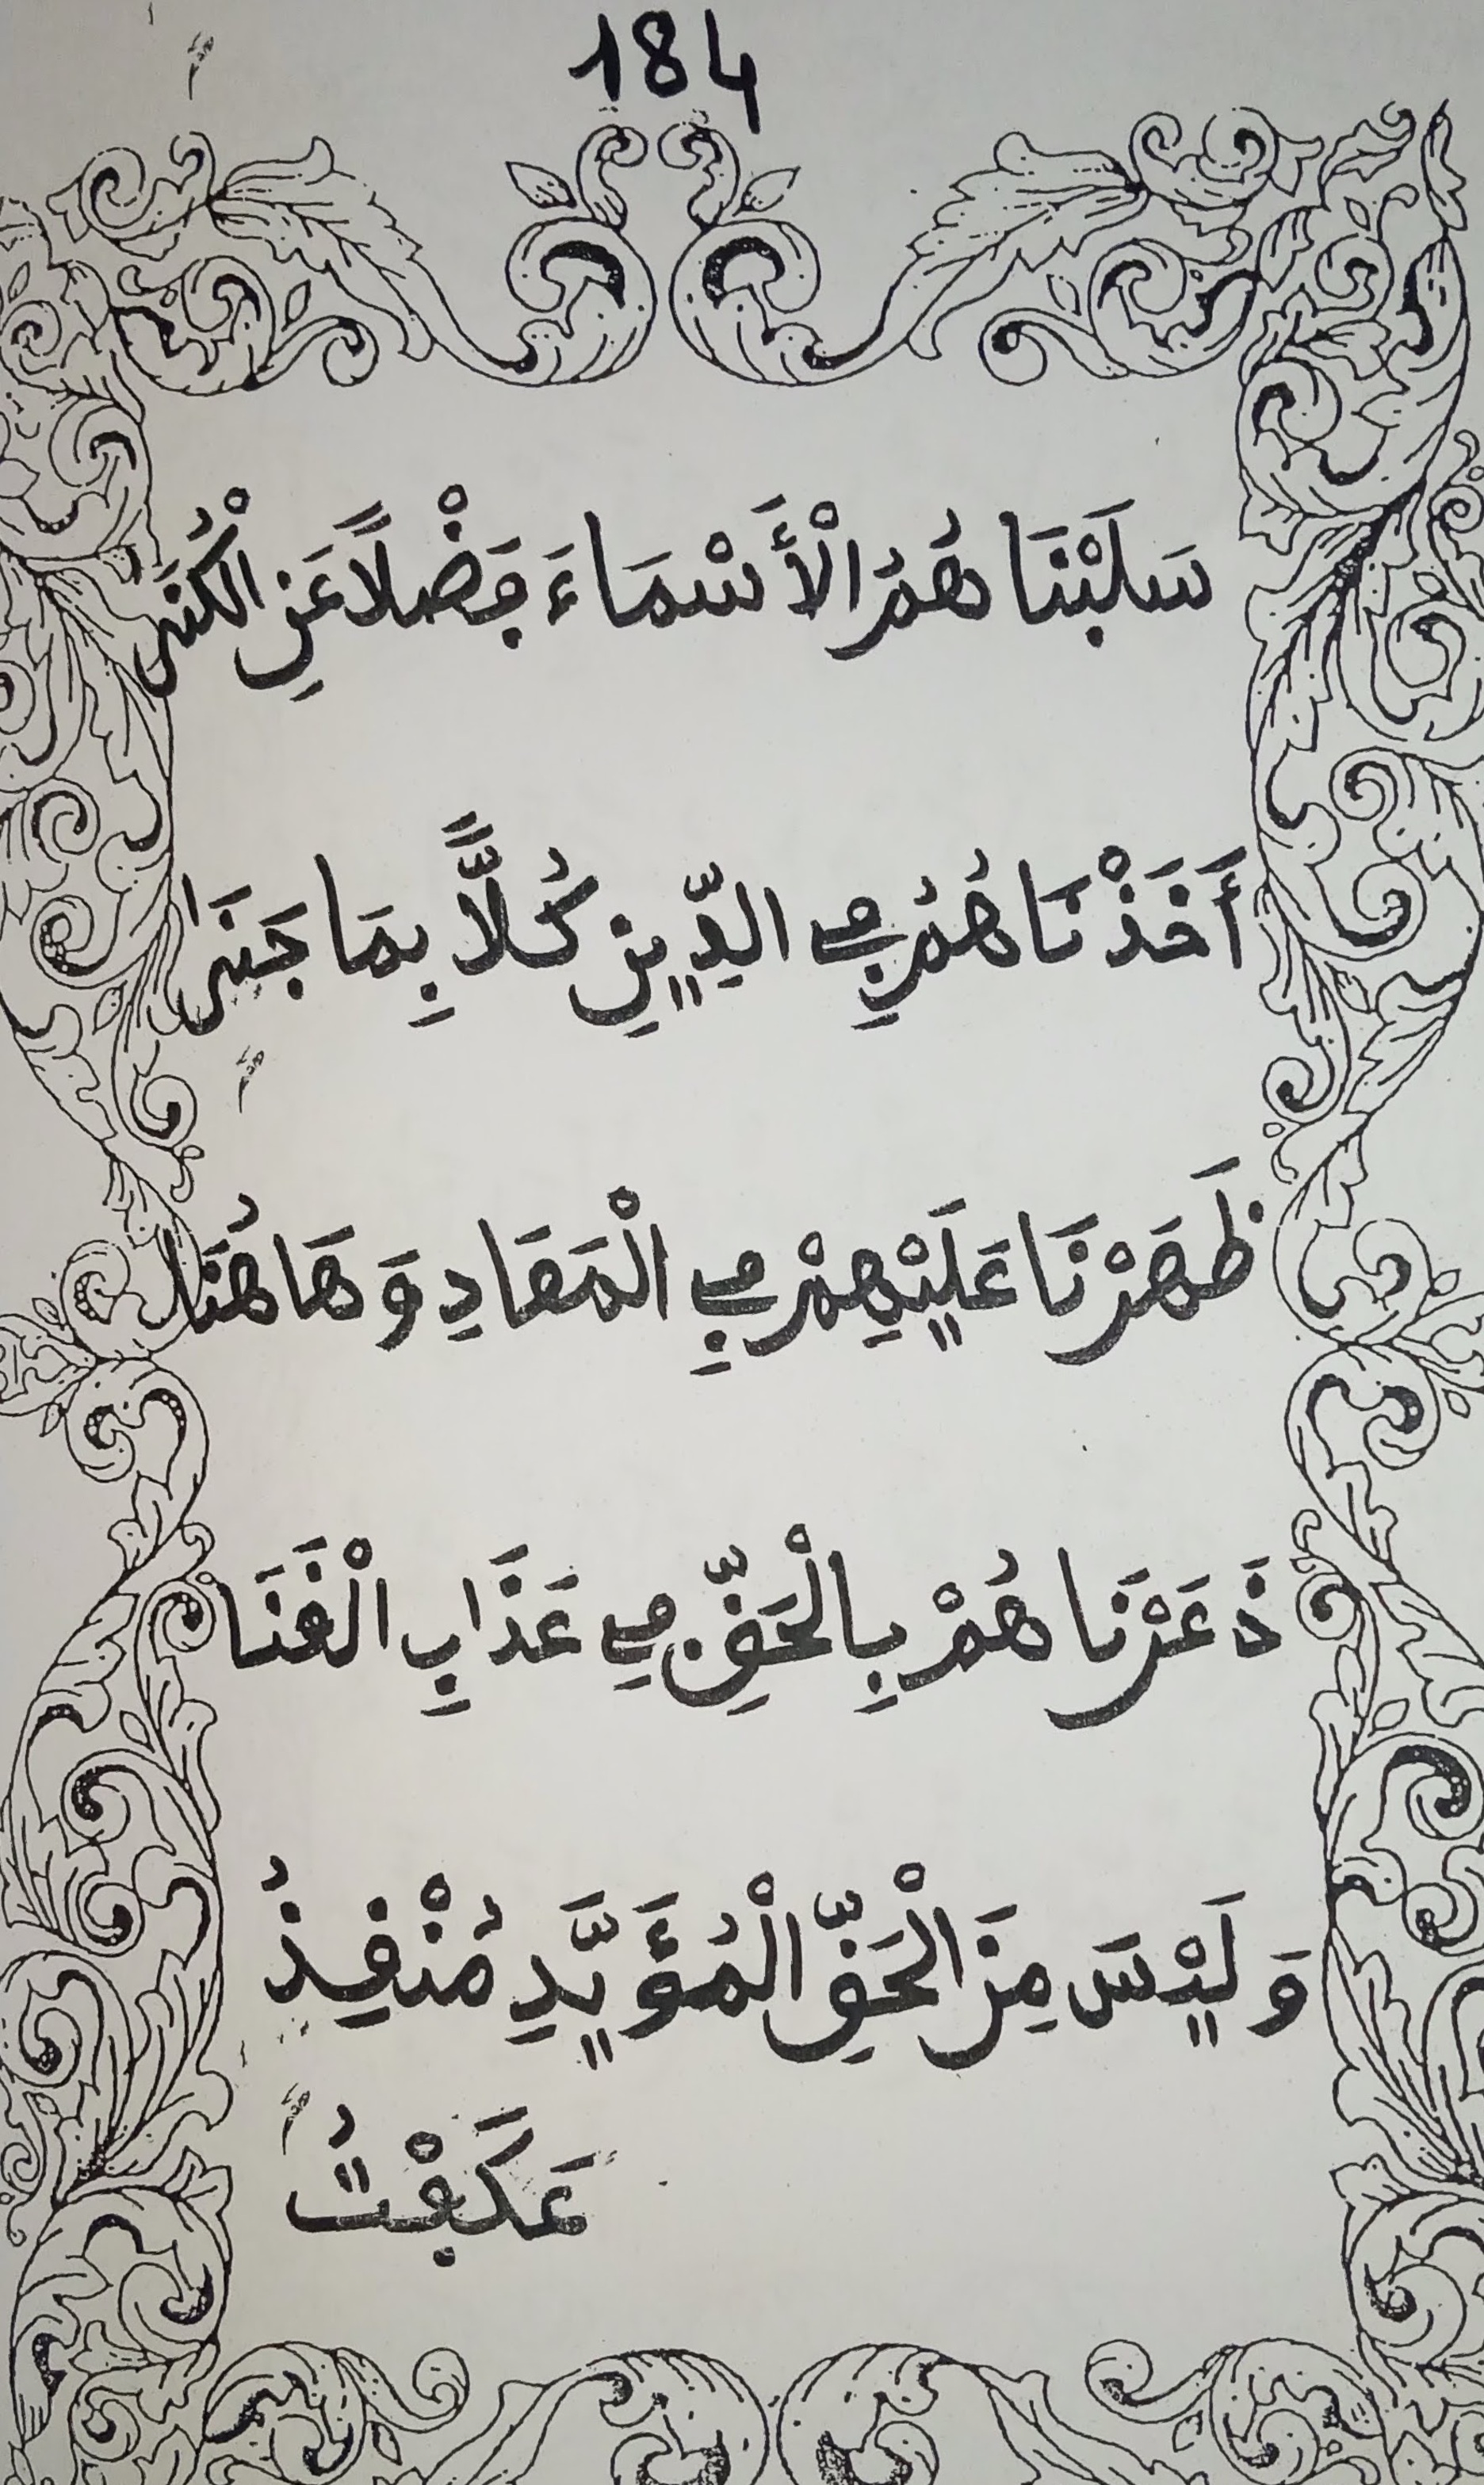 184
سَلَبْنَا هُمُ الْأَسْمَاءَ فَضْلًا عَنِ الْكُنَى
أَخَذْنَا هُمُ فِي الدِّينِ كُلًّا بِمَا جَنَى
ظَهَرْنَا عَلَيْهِمْ فِي الْمَعَادِ وَهَاهُنَا
ذَعَرْنَا هُمْ بِالْحَقِّ فِي عَذَابِ الْعَنَا
وَلَيْسَ مِنَ الْحَقِّ الْمُؤَيَّدِ مُنْقِذُ
عَكَفْتُ